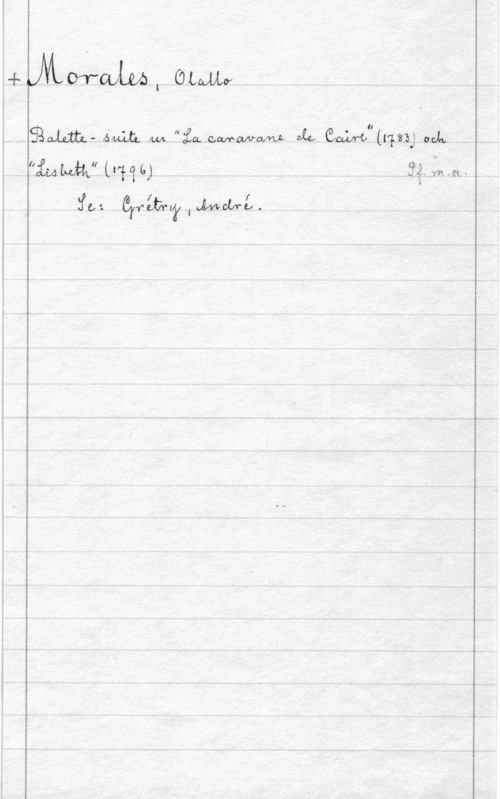 + Morales, Olallo
Balette- suite ur "La caravane de Caire" (1783) och
"Lisbeth" (1796) Pf. m.a.
Se: Grétry, André.